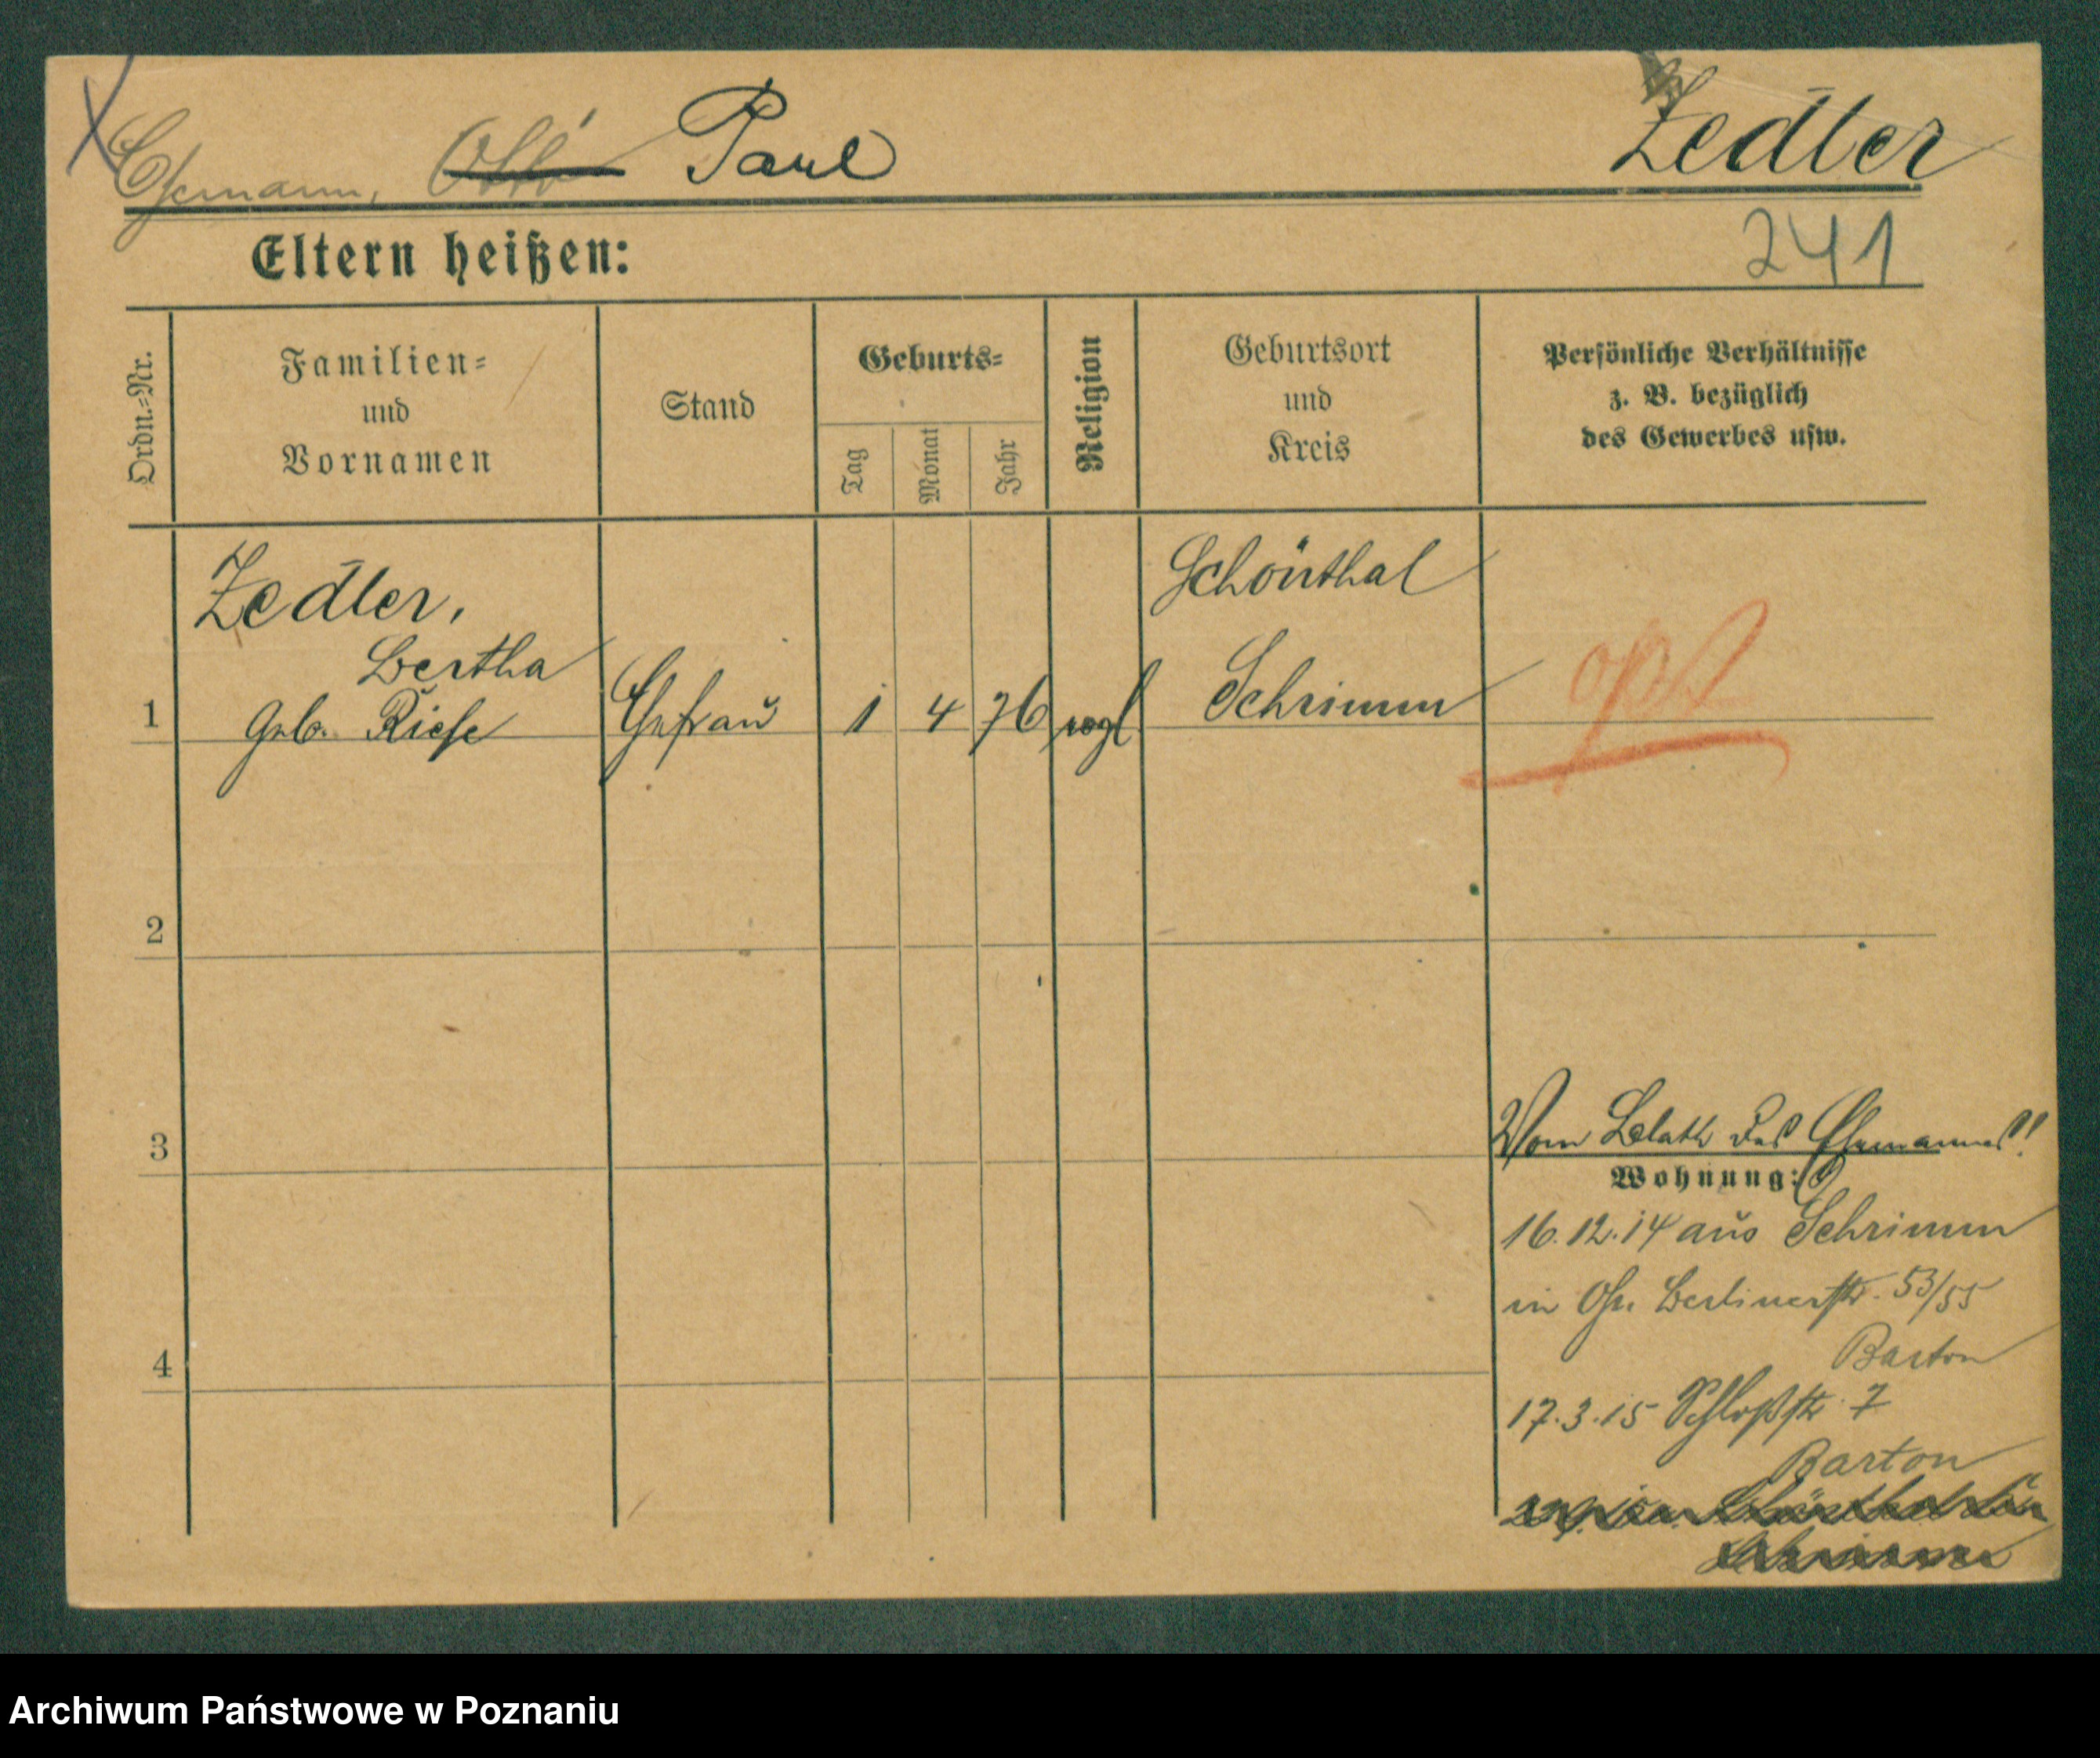 Ehemann, Otto Paul Zedler
Eltern heißen: 241
Ordn.=Nr.
Familien=
und
Vornamen
Stand
Geburts=
Tag
Monat
Jahr
Religion
Geburtsort
und
Kreis
Persönliche Verhältnisse
z. B. bezüglich
des Gewerbes usw.
Zedler, Schönthal
Bertha
1 Geb. Riese Ehefrau 1 4 76 evgl Schrimm
2
3
Vom des Ehemannes!
Wohnung:
16.12.14 aus Schrimm
in Gr. Berlinerstr. 53/55
Barton
4
17.3.15 Schloßstr 7
Barton
Archiwum Państwowe w Poznaniu